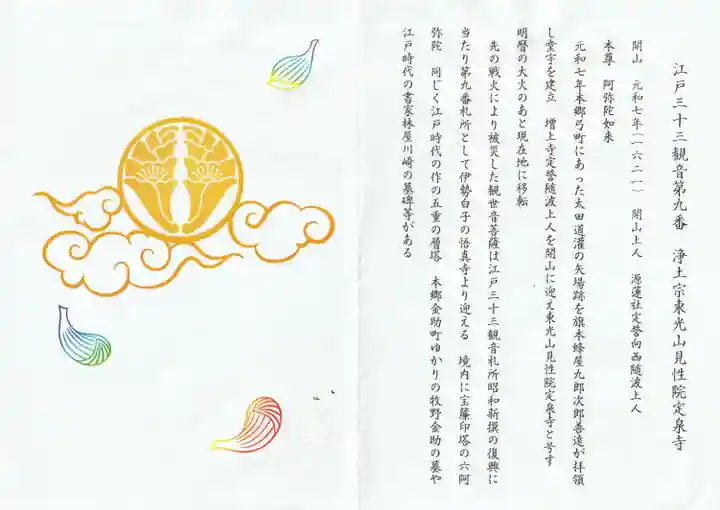 江戸三十三観音第九番　浄土宗東光山見性院定泉寺
開山　元和七年（一六二一）　開山上人　源蓮社定誉向西随波上人
本尊　阿弥陀如来
元和七年本郷弓町にあった太田道灌の矢場跡を旗本蜂屋九郎次郎善遠が拝領
し堂宇を建立　増上寺定誉随波上人を開山に迎え東光山見性院定泉寺と号す
明暦の大火のあと現在地に移転
先の戦火により被災した観世音菩薩は江戸三十三観音札所昭和新撰の復興に
当たり第九番札所として伊勢白子の悟真寺より迎える　境内に宝篋印塔の六阿
弥陀　同じく江戸時代の作の五重の層塔　本郷金助町ゆかりの牧野金助の墓や
江戸時代の書家林屋川崎の墓碑等がある